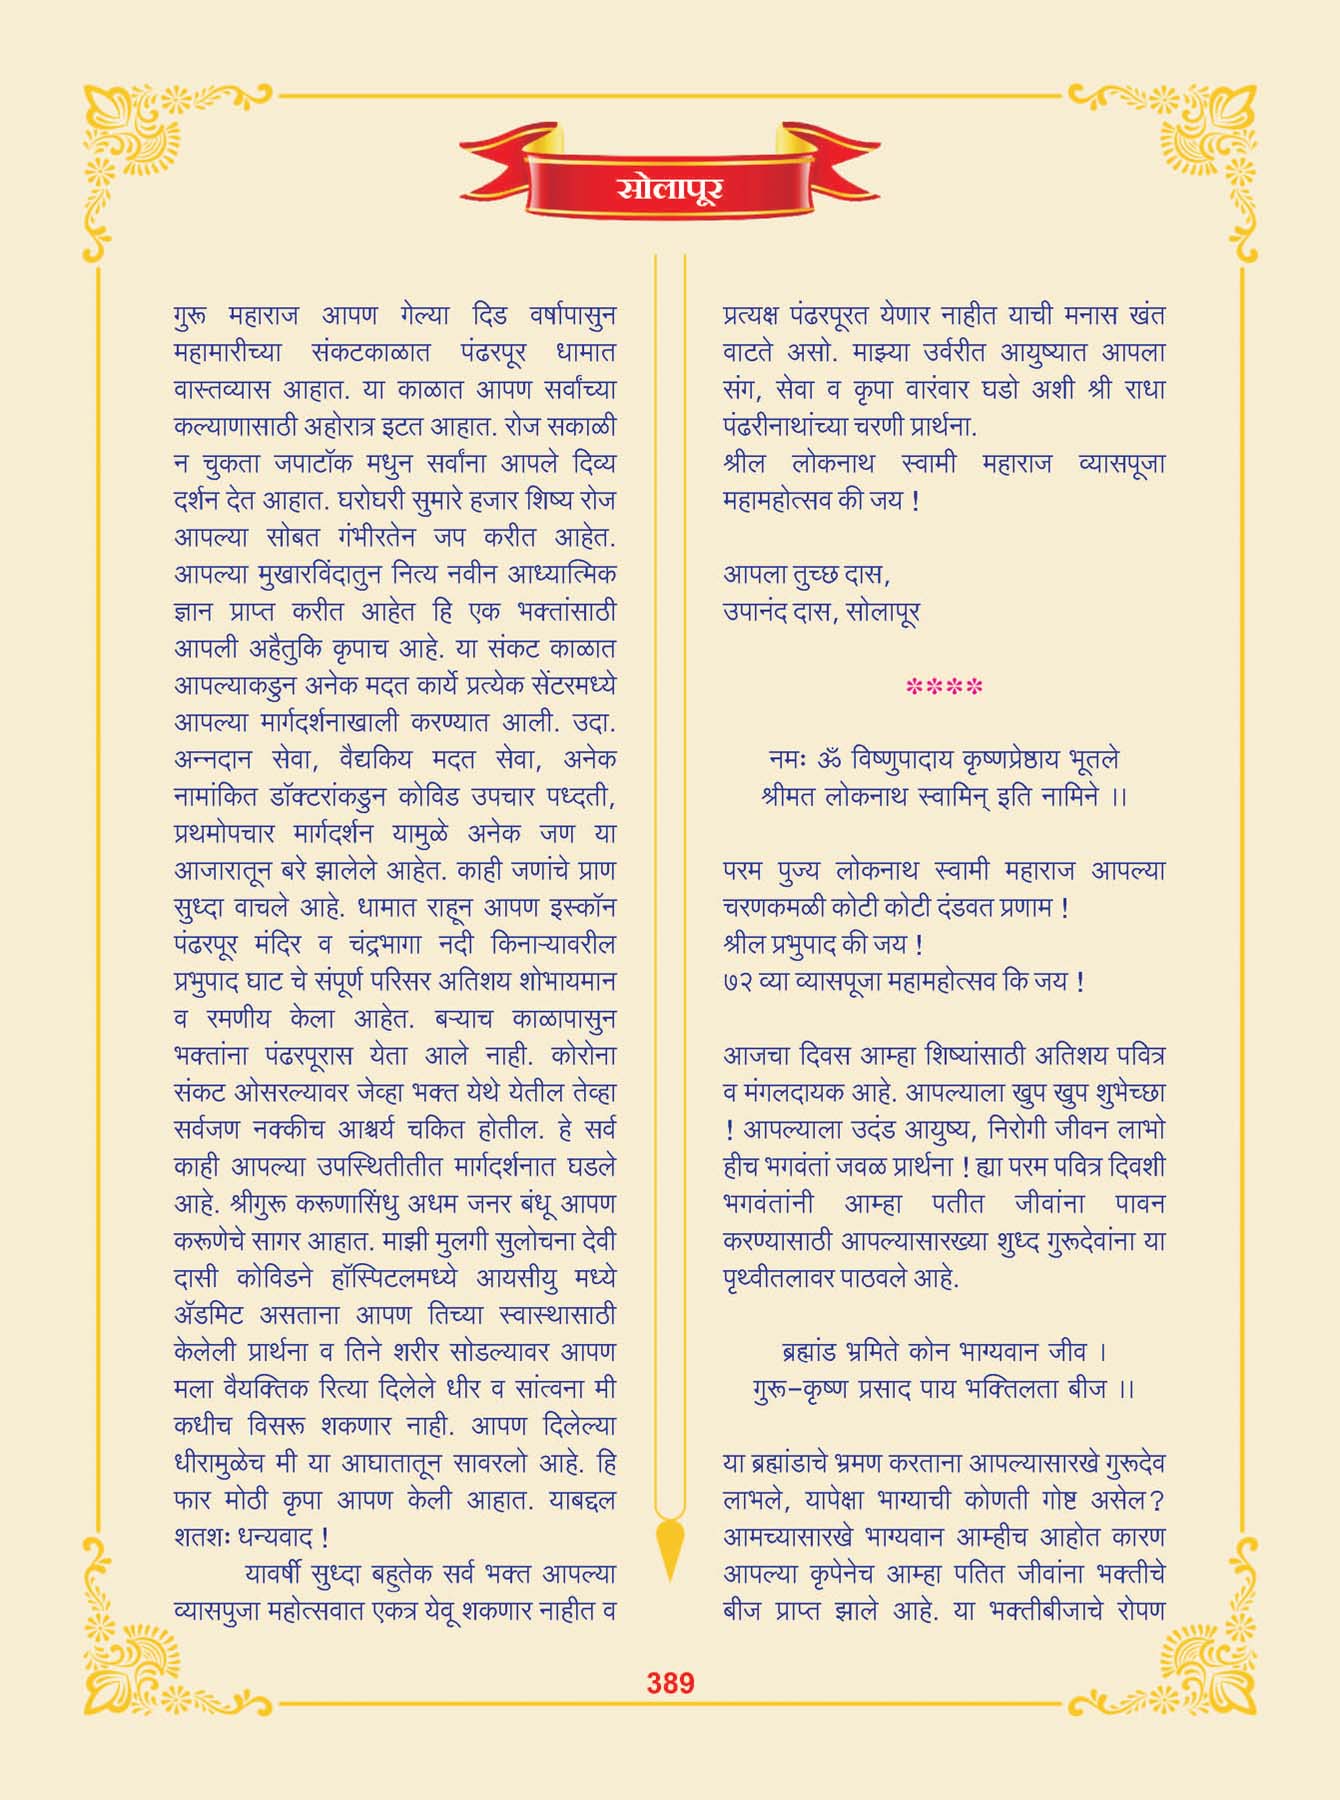 सोलापूर
गुरू महाराज आपण गेल्या दिड वर्षापासुन
महामारीच्या संकटकाळात पंढरपूर धामात
वास्तव्यास आहात. या काळात आपण सर्वांच्या
कल्याणासाठी अहोरात्र इटत आहात. रोज सकाळी
न चुकता जपाटॉक मधुन सर्वांना आपले दिव्य
दर्शन देत आहात. घरोघरी सुमारे हजार शिष्य रोज
आपल्या सोबत गंभीरतेन जप करीत आहेत.
आपल्या मुखारविंदातुन नित्य नवीन आध्यात्मिक
ज्ञान प्राप्त करीत आहेत हि एक भक्तांसाठी
आपली अहैतुकि कृपाच आहे. या संकट काळात
आपल्याकडुन अनेक मदत कार्ये प्रत्येक सेंटरमध्ये
आपल्या मार्गदर्शनाखाली करण्यात आली. उदा.
अन्नदान सेवा, वैद्यकिय मदत सेवा, अनेक
नामांकित डॉक्टरांकडुन कोविड उपचार पध्दती,
प्रथमोपचार मार्गदर्शन यामुळे अनेक जण या
आजारातून बरे झालेले आहेत. काही जणांचे प्राण
सुध्दा वाचले आहे. धामात राहून आपण इस्कॉन
पंढरपूर मंदिर व चंद्रभागा नदी किनाऱ्यावरील
प्रभुपाद घाट चे संपूर्ण परिसर अतिशय शोभायमान
व रमणीय केला आहेत. बऱ्याच काळापासुन
भक्तांना पंढरपूरास येता आले नाही. कोरोना
संकट ओसरल्यावर जेव्हा भक्त येथे येतील तेव्हा
सर्वजण नक्कीच आश्चर्य चकित होतील. हे सर्व
काही आपल्या उपस्थितीतीत मार्गदर्शनात घडले
आहे. श्रीगुरू करूणासिंधु अधम जनर बंधू आपण
करूणेचे सागर आहात. माझी मुलगी सुलोचना देवी
दासी कोविडने हॉस्पिटलमध्ये आयसीयु मध्ये
ॲडमिट असताना आपण तिच्या स्वास्थासाठी
केलेली प्रार्थना व तिने शरीर सोडल्यावर आपण
मला वैयक्तिक रित्या दिलेले धीर व सांत्वना मी
कधीच विसरू शकणार नाही. आपण दिलेल्या
धीरामुळेच मी या आघातातून सावरलो आहे. हि
फार मोठी कृपा आपण केली आहात. याबद्दल
शतशः धन्यवाद !
यावर्षी सुध्दा बहुतेक सर्व भक्त आपल्या
व्यासपुजा महोत्सवात एकत्र येवू शकणार नाहीत व
प्रत्यक्ष पंढरपूरत येणार नाहीत याची मनास खंत
वाटते असो. माझ्या उर्वरीत आयुष्यात आपला
संग, सेवा व कृपा वारंवार घडो अशी श्री राधा
पंढरीनाथांच्या चरणी प्रार्थना.
श्रील लोकनाथ स्वामी महाराज व्यासपूजा
महामहोत्सव की जय !
आपला तुच्छ दास,
उपानंद दास, सोलापूर
****
नमः ॐ विष्णुपादाय कृष्णप्रेष्ठाय भूतले
श्रीमत लोकनाथ स्वामिन् इति नामिने ।।
परम पुज्य लोकनाथ स्वामी महाराज आपल्या
चरणकमळी कोटी कोटी दंडवत प्रणाम !
श्रील प्रभुपाद की जय !
७२ व्या व्यासपूजा महामहोत्सव कि जय !
आजचा दिवस आम्हा शिष्यांसाठी अतिशय पवित्र
व मंगलदायक आहे. आपल्याला खुप खुप शुभेच्छा
! आपल्याला उदंड आयुष्य, निरोगी जीवन लाभो
हीच भगवंतां जवळ प्रार्थना ! ह्या परम पवित्र दिवशी
भगवंतांनी आम्हा पतीत जीवांना पावन
करण्यासाठी आपल्यासारख्या शुध्द गुरूदेवांना या
पृथ्वीतलावर पाठवले आहे.
ब्रह्मांड भ्रमिते कोन भाग्यवान जीव ।
गुरू-कृष्ण प्रसाद पाय भक्तिलता बीज ।।
या ब्रह्मांडाचे भ्रमण करताना आपल्यासारखे गुरूदेव
लाभले, यापेक्षा भाग्याची कोणती गोष्ट असेल?
आमच्यासारखे भाग्यवान आम्हीच आहोत कारण
आपल्या कृपेनेच आम्हा पतित जीवांना भक्तीचे
बीज प्राप्त झाले आहे. या भक्तीबीजाचे रोपण
389